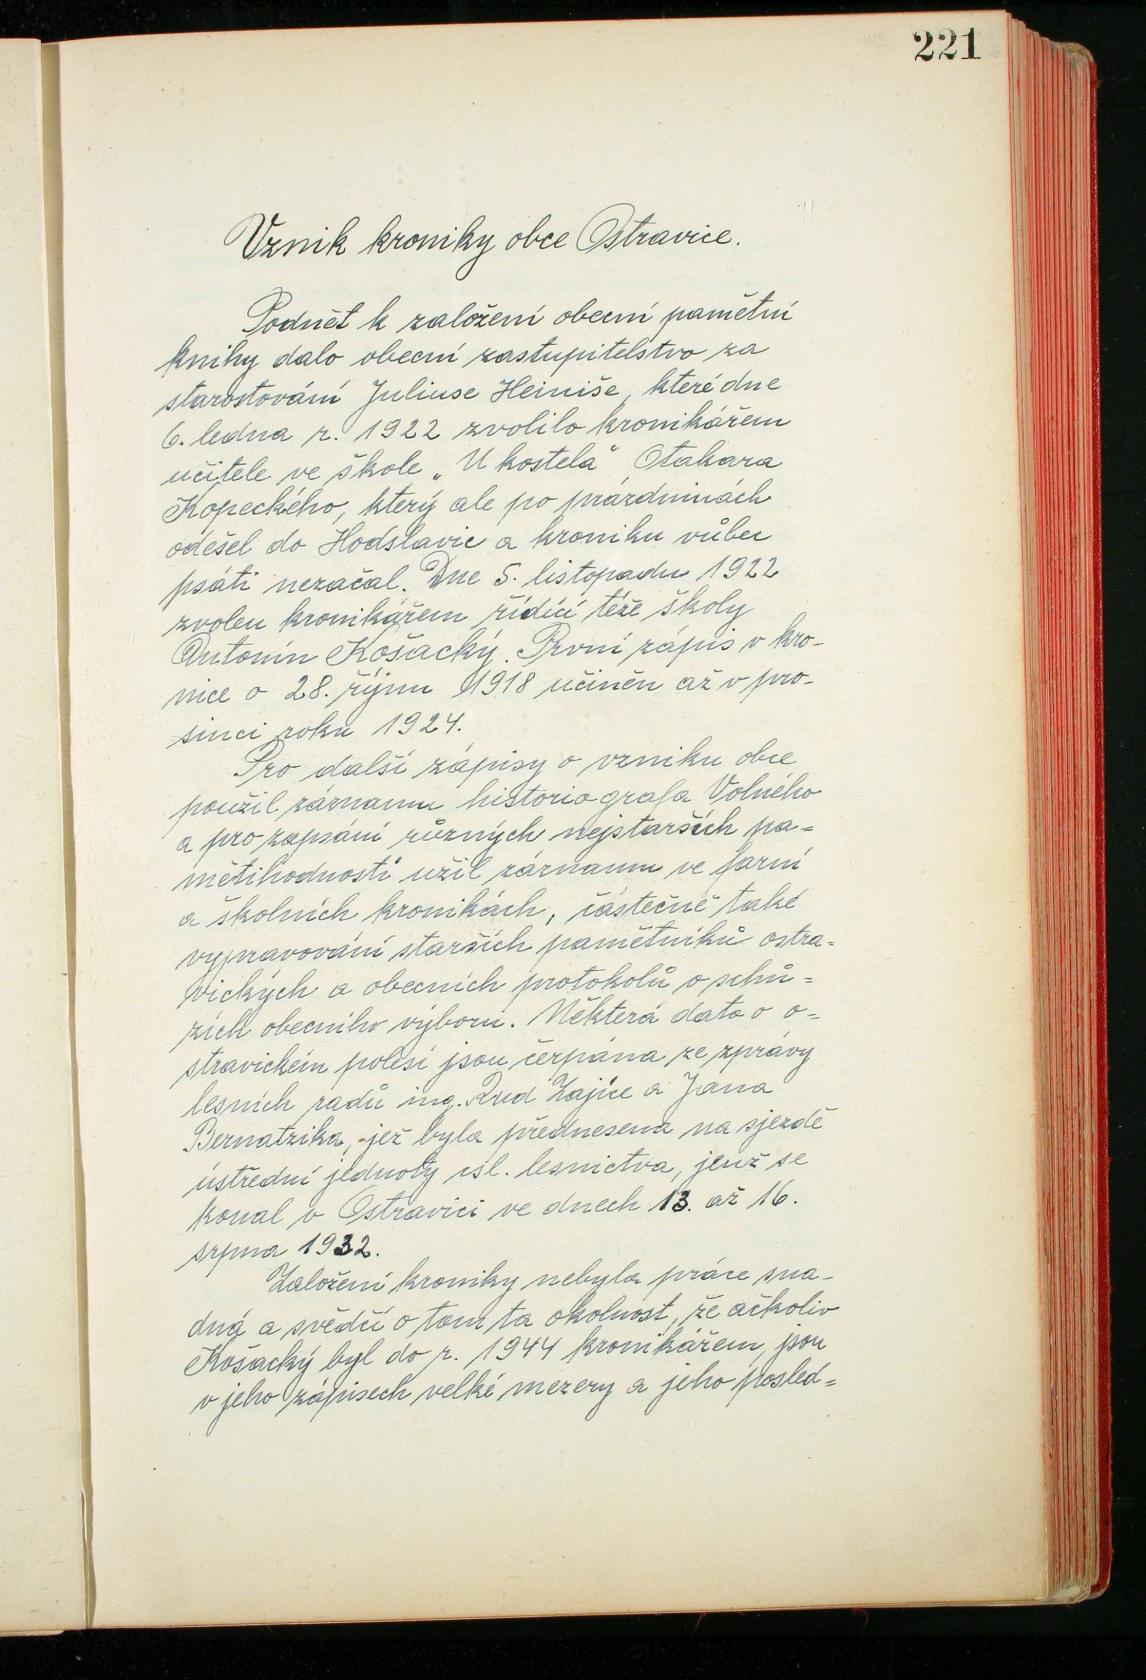 221
Vznik kroniky obce Ostravice.
Podnět k založení obecní pamětní
knihy dalo obecní zastupitelstvo za
starostování Juliuse Heiniše, které dne
6. ledna r. 1922 zvolilo kronikářem
učitele ve škole „U kostela" Otakara
Kopeckého, který ale po prázdninách
odešel do Hodslavic a kroniku vůbec
psáti nezačal. Dne 5. listopadu 1922
zvolen kronikářem řídící téže školy
Antonín Košacký. První zápis v kro-
nice o 28. říjnu 1918 učiněn až v pro-
sinci roku 1924.
Pro další zápisy o vzniku obce
použil záznamu historiografa Volného
a pro zapsání různých nejstarších pa=
mětihodností užil záznamu ve farní
a školních kronikách, částečně také
vypravování starších pamětníků ostra=
vických a obecních protokolů o schů=
zích obecního výboru. Některá data o o-
stravickém polesí jsou čerpána ze zprávy
lesních radů ing. Rud Zajíce a Jana
Bernatzika, jež byla přednesena na sjezdě
ústřední jednoty čsl. lesnictva, jenž se
konal v Ostravici ve dnech 13. až 16.
srpna 1932.
Založení kroniky nebyla práce sna-
dná a svědčí o tom ta okolnost, že ačkoliv
Košacký byl do r. 1944 kronikářem, jsou
v jeho zápisech velké mezery a jeho posled=